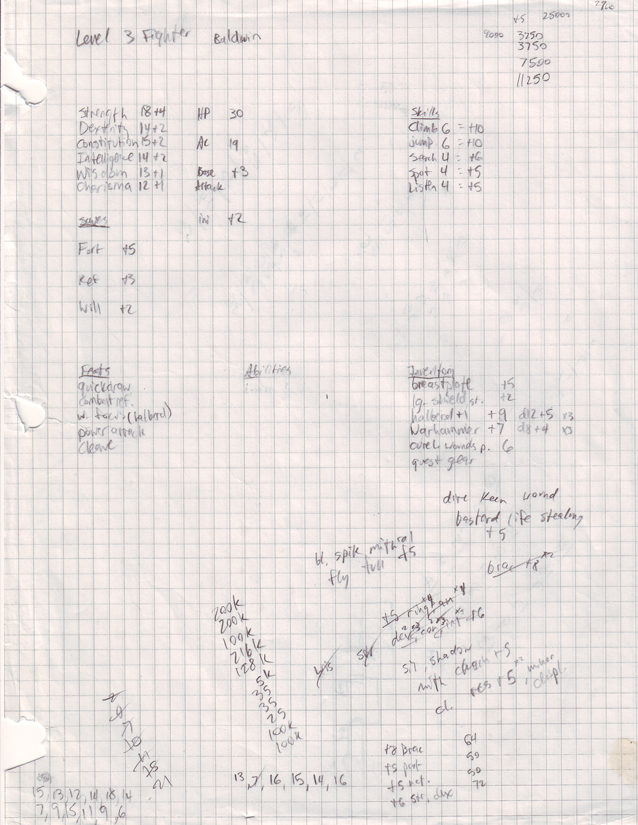 +5 25000
Level 3 Fighter Baldwin
9000 3750
3750
7500
11250
Strength 18 +4 HP 30
Dexterity 14 +2
Constitution 15 +2 AC 19
Intelligence 14 +2
Wisdom 13 +1 Base +3
Charisma 12 +1 Attack
Skills
Climb 6 = +10
jump 6 = +10
Search 4 = +6
Spot 4 = +5
Listen 4 = +5
Saves ini +2
Fort +5
Ref +3
Will +2
Feats
quickdraw
combat ref.
w. focus (halbred)
power attack
cleave
Abilities
Inventory
breastplate +5
lg. shield st. +2
halberd +1 +9 d12 +5 x3
Warhammer +7 d8 +4 x3
cure lt. wounds p. 6
quest gear
dire keen wound
bastard life stealing
+5
bl. spik mithral
fly full +5
brac +8
200k
200k
100k
216k
128k
5k
35
35
25
100k
100k
+5 ring
str
sil shadow
mith chain +5
cl. res +5
+8 brac 64
+5 prot 50
+5 nat. 50
+6 str, dex 72
13, 7, 16, 15, 14, 16
15, 13, 12, 14, 18, 14
7, 9, 15, 11, 9, 6
21